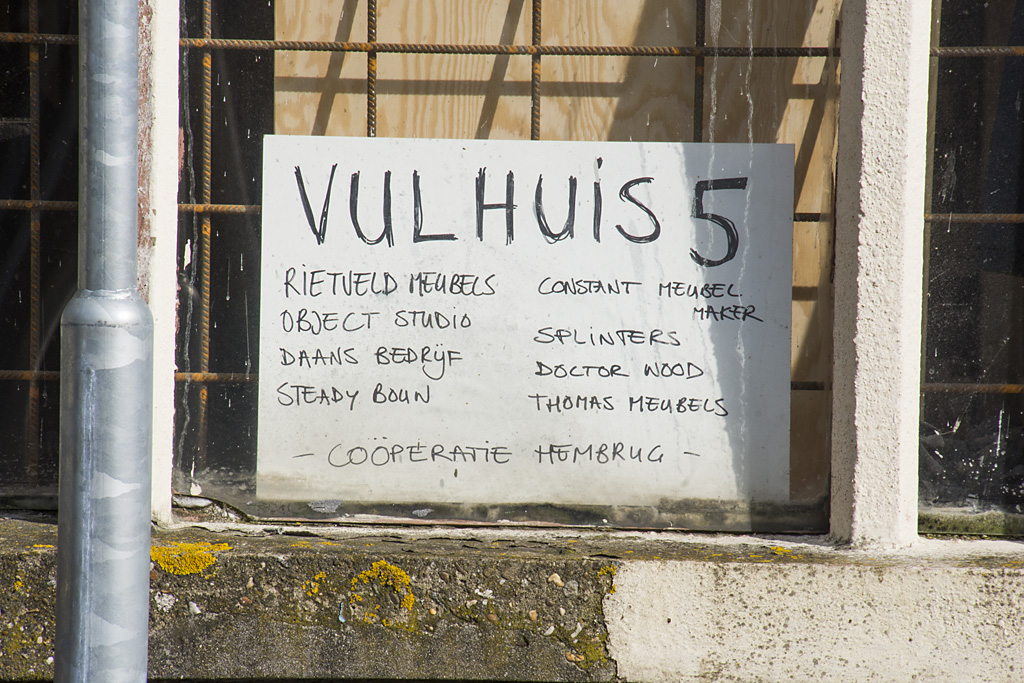 VULHUIS 5
RIETVELD MEUBELS
OBJECT STUDIO
DAANS BEDRIJF
STEADY BOUW
CONSTANT MEUBEL
MAKER
SPLINTERS
DOCTOR WOOD
THOMAS MEUBELS
- COÖPERATIE HEMBRUG -